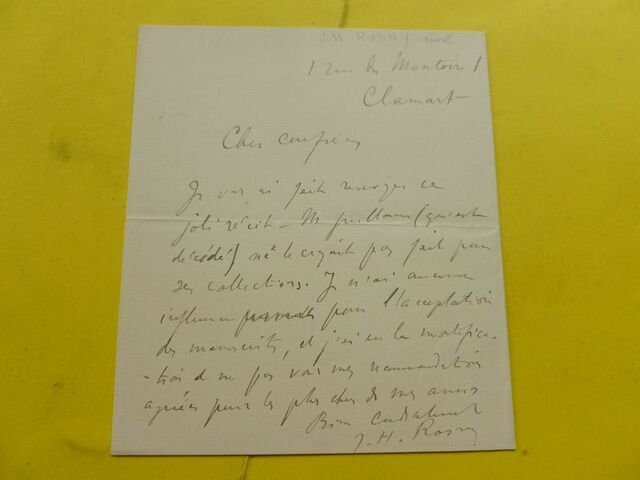 J.H. ROSNY aîné
1 rue du Montoir
Clamart
Cher confrère
Je vous ai fait renvoyer ce
joli récit - M (qui est
décédé) ne le croyait pas fait pour
ses collections. Je n'ai aucune
influence pour l'acceptation
des manuscrits, et j'ai eu la mortifica-
-tion de ne pas voir mes recommandations
agréées pour les plus chers de mes amis
Bien cordialement
J.-H. Rosny